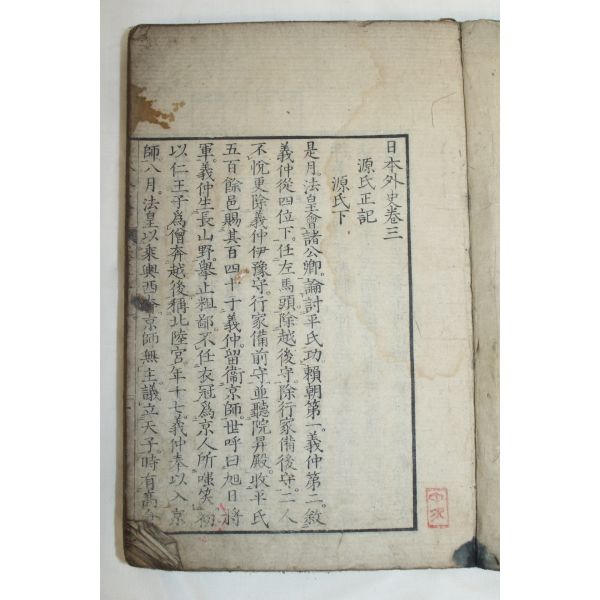 日本外史卷三
源氏正記
源氏下
是月。法皇會諸公卿。論討平氏功。賴朝第一。義仲第二。敘
義仲從四位下。任左馬頭。除越後守。除行家備後守。二人
不悅。更除義仲伊豫守。行家備前守。並聽院昇殿。收平氏
五百餘邑。賜其百四十于義仲。留衞京師。世呼曰旭日將
軍。義仲生長山野。擧止粗鄙。不任衣冠。爲京人所嗤笑。初
以仁王子爲僧。奔越後。稱北陸宮。年十七。義仲奉以入京
師。八月。法皇以乘輿西奔。京師無主。議立天子。時有高